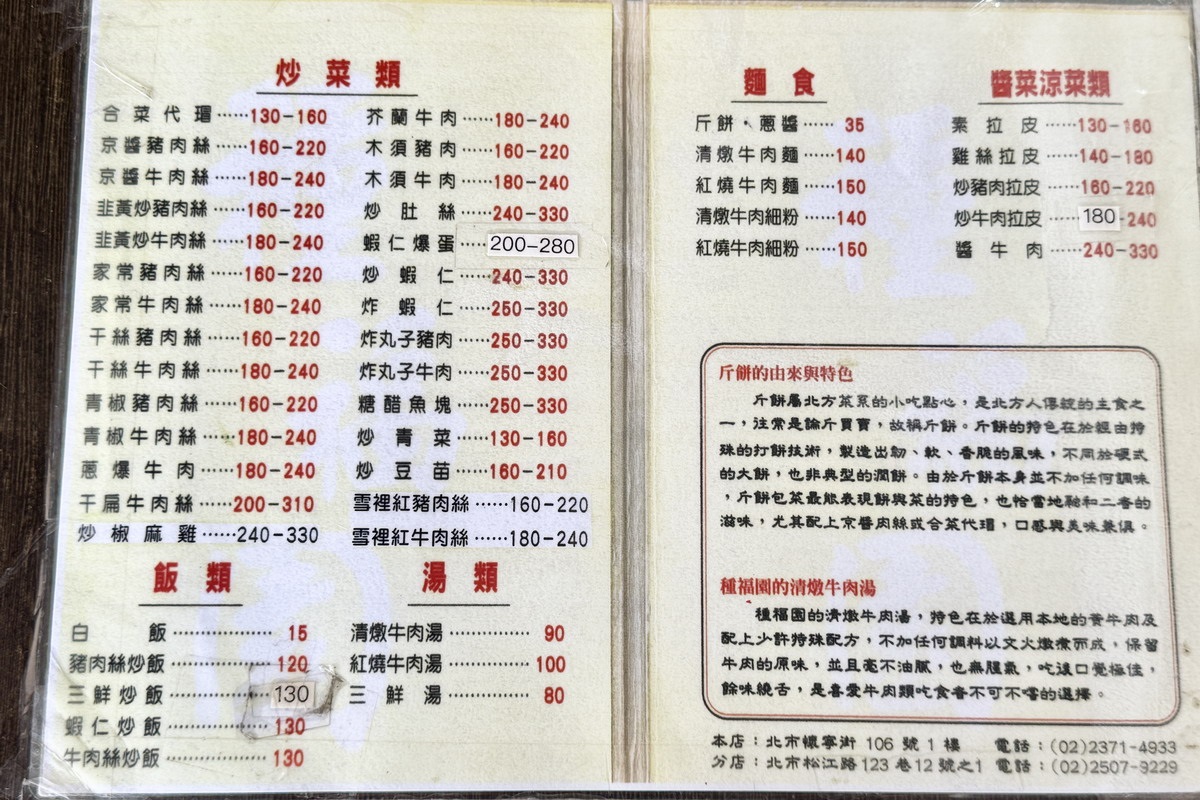 炒菜類
合菜代瑁……130-160
京醬豬肉絲……160-220
京醬牛肉絲……180-240
韭黃炒豬肉絲……160-220
韭黃炒牛肉絲……180-240
家常豬肉絲……160-220
家常牛肉絲……180-240
干絲豬肉絲……160-220
干絲牛肉絲……180-240
青椒豬肉絲……160-220
青椒牛肉絲……180-240
蔥爆牛肉……180-240
干扁牛肉絲……200-310
炒椒麻雞……240-330
芥蘭牛肉……180-240
木須豬肉……160-220
木須牛肉……180-240
炒肚絲……240-330
蝦仁爆蛋……200-280
炒蝦仁……240-330
炸蝦仁……250-330
炸丸子豬肉……250-330
炸丸子牛肉……250-330
糖醋魚塊……250-330
炒青菜……130-160
炒豆苗……160-210
雪裡紅豬肉絲……160-220
雪裡紅牛肉絲……180-240
飯類
白飯………………15
豬肉絲炒飯………………120
三鮮炒飯………………130
蝦仁炒飯………………130
牛肉絲炒飯………………130
湯類
清燉牛肉湯……………90
紅燒牛肉湯……………100
三鮮湯……………80
麵食
斤餅・蔥醬……35
清燉牛肉麵……140
紅燒牛肉麵……150
清燉牛肉細粉……140
紅燒牛肉細粉……150
醬菜涼菜類
素拉皮……130-160
雞絲拉皮……140-180
炒豬肉拉皮……160-220
炒牛肉拉皮……180-240
醬牛肉……240-330
斤餅的由來與特色
斤餅屬北方菜系的小吃點心，是北方人傳統的主食之
一，往常是論斤買賣，故稱斤餅。斤餅的特色在於經由特
殊的打餅技術，製造出韌、軟、香脆的風味，不同於硬式
的大餅，也非典型的潤餅。由於斤餅本身並不加任何調味
，斤餅包菜最能表現餅與菜的特色，也恰當地融和二者的
滋味，尤其配上京醬肉絲或合菜代瑁，口感與美味兼俱。
種福園的清燉牛肉湯
種福園的清燉牛肉湯，特色在於選用本地的黃牛肉及
配上少許特殊配方，不加任何調料以文火燉煮而成，保留
牛肉的原味，並且毫不油膩，也無腥氣，吃這口覺極佳，
餘味繞舌，是喜愛牛肉類吃食者不可不嚐的選擇。
本店：北市懷寧街 106 號 1 樓 電話：(02)2371-4933
分店：北市松江路123 巷12 號之1 電話：(02)2507-9229